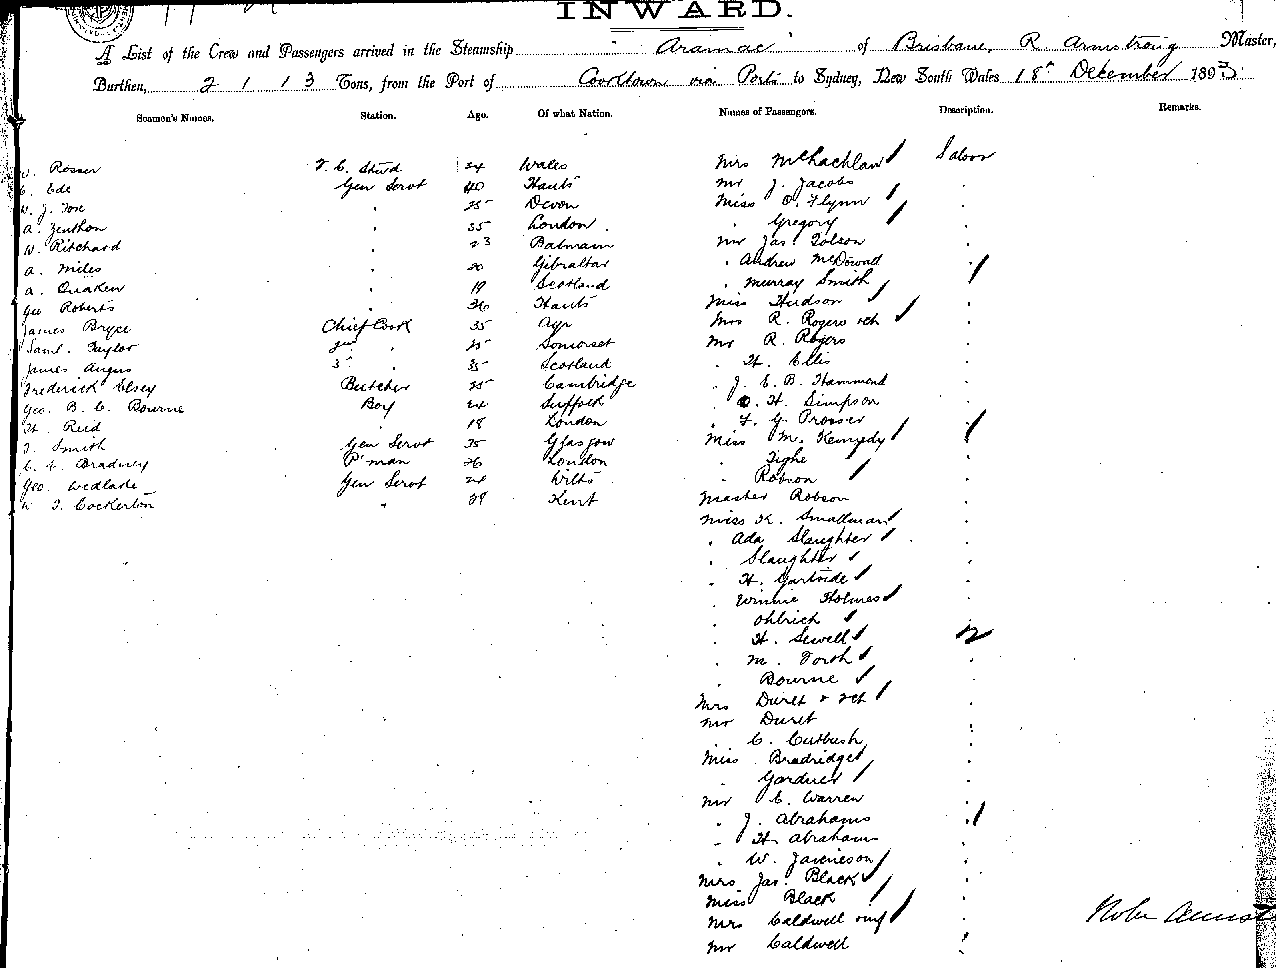 INWARD.
A List of the Crew and Passengers arrived in the Steamship "Aramac" of Brisbane, R. Armstrong Master,
Burthen, 2113 Tons, from the Port of Cooktown via Ports to Sydney, New South Wales 18th December 1893
Seamen's Names. Station. Age. Of what Nation. Names of Passengers. Description. Remarks.
W. Rosser 24 Wales Mrs McLachlan Saloon
E. Ede Gen Servt 40 Hants Mr J. Jacobs
W. J. 25 Devon Miss O. Flynn
A. Zenthon 35 London . Gregory
W. Ritchard 23 Balmain Mr Jas. Tolson
A. Miles 20 Gibraltar . Andrew McDowall
A. Quaken 19 Scotland . Murray Smith
Geo Roberts 36 Hants Miss Hudson
James Bryce Chief Cook 35 Ayr Mrs R. Rogers
Saml. Taylor 2nd . 25 Somerset Mr R. Rogers
James Angus 3 . 35 Scotland . H. Ellis
Frederick Elsey Butcher 25 Cambridge . J. E. B. Hammond
Geo. B. C. Bourne Boy 24 Suffolk . H. Simpson
H. Reid 18 London . F. G. Prosser
T. Smith Gen Servt 35 Glasgow Miss M. Kennedy
Bradney P'man 26 London . Tighe
Geo. Wedlade Gen Servt 24 Wilts . Robson
W T. Cockerton 29 Kent Master Robson
Miss K. Smallman
. Ada Slaughter
. Slaughter
. H. Gartside
. Winnie Holmes
. Ohlrich
. H. Sewell
. M. Forth
. Bourne
Mrs Duret
Mr Duret
. C. Cutbush
Miss Bradridge
. Gardner
Mr E. Warren
. J. Abrahams
. H. Abraham
. W. Jamieson
Mrs Jas. Black
Miss Black
Mrs Caldwell
Mr Caldwell